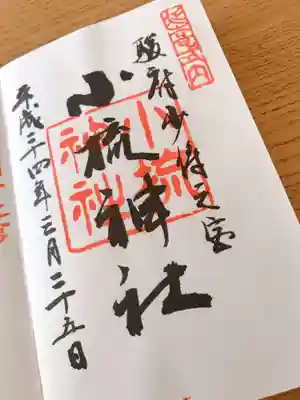 駿府少将之宮
小梳神社
小梳
神社
平成二十四年三月二十五日